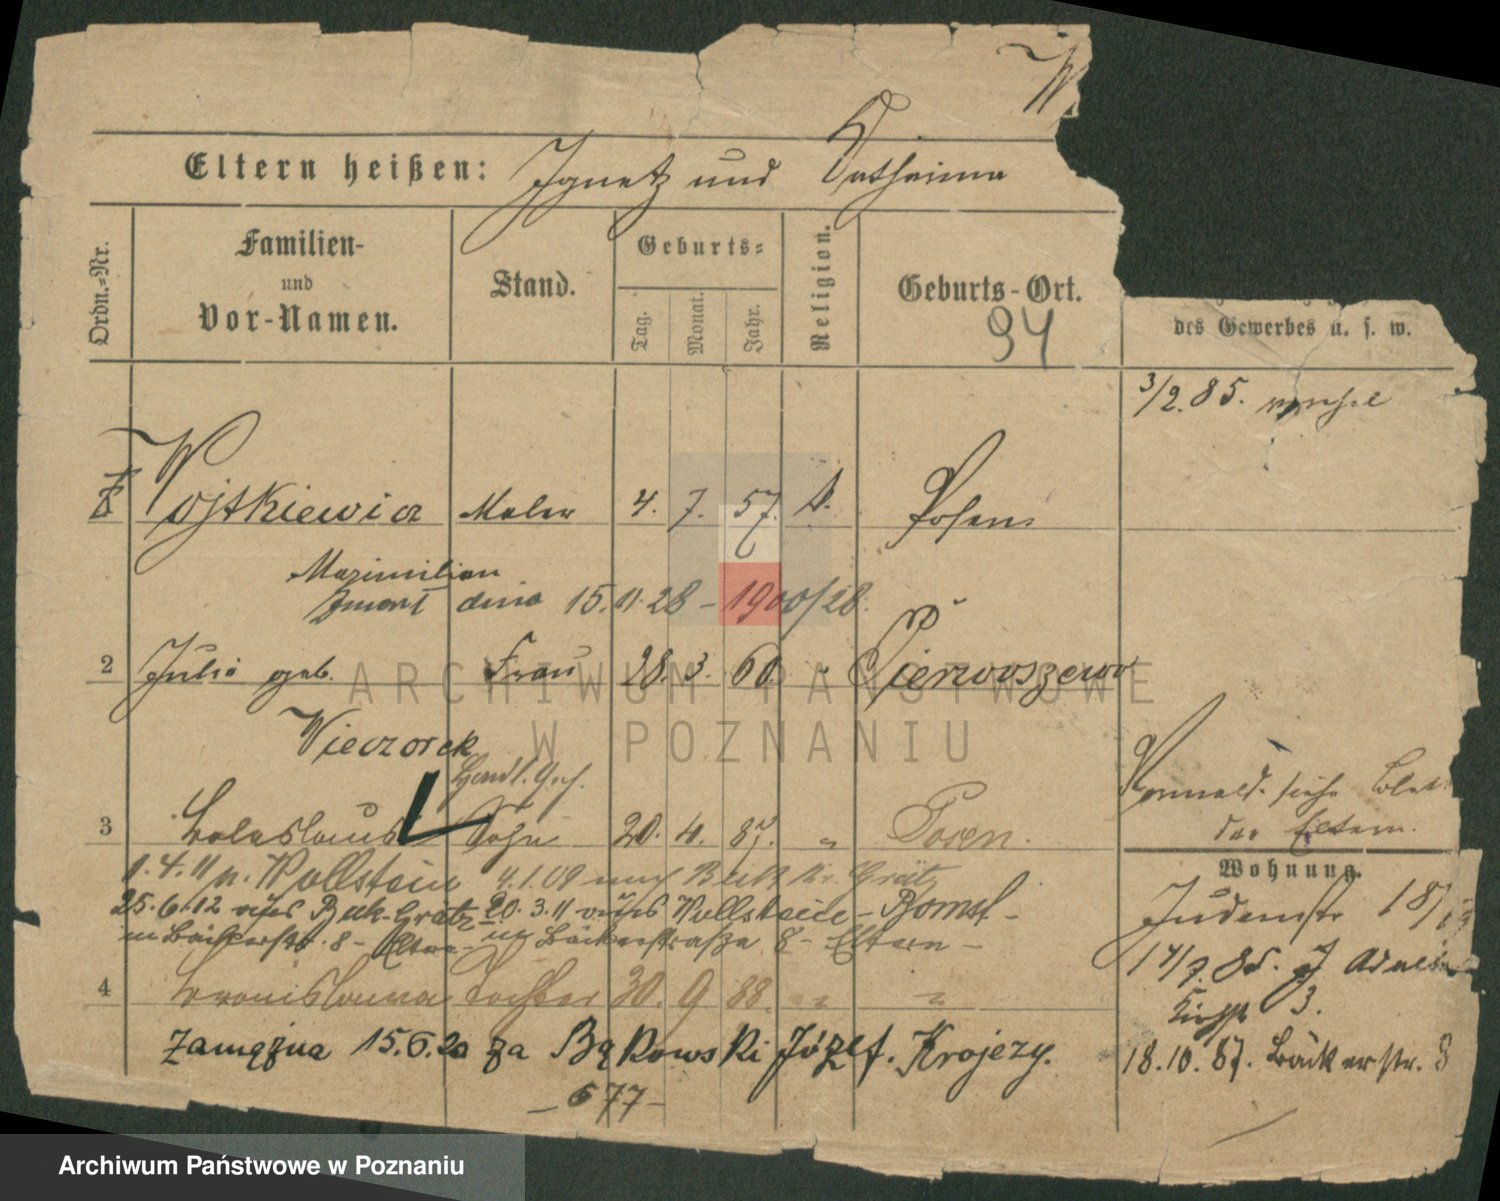 W
Eltern heißen: Ignatz und Catharina
Ordn.=Nr.
Familien-
und
Vor-Namen.
Stand.
Geburts=
Tag.
Monat.
Jahr.
Religion.
Geburts-Ort.
94
des Gewerbes u. s. w.
3/2. 85.
Wojtkiewicz Maler 4. 7. 57. k. Posen
Maximilian
zmarł dnia 15.11.28 – 1900/28.
2 Julia geb. Frau 28. 3. 60. " Pierwoszewo
Wieczorek
Handl. Geh.
3 Boleslaus Sohn 20. 4. 87. " Posen.
1.4.11 n. Wollstein 4.1.09 nach Buk Kr. Grätz
25.6.12 aus Buk-Grätz 20.3.11 aus Wollstein-Bomst-
in Bäckerstr. 8- Eltern- in Bäckerstraße 8- Eltern-
4 Bronislawa Tochter 30. 9 88. " "
Zamężna 15.6.20 za Bąkowski Józef. Krojczy.
– 677 –
siehe Blatt
der Eltern.
Wohnung.
Judenstr 18/19
17/9. 85.
3.
18.10.87. Bäckerstr. 8
ARCHIWUM PAŃSTWOWE
W POZNANIU
Archiwum Państwowe w Poznaniu